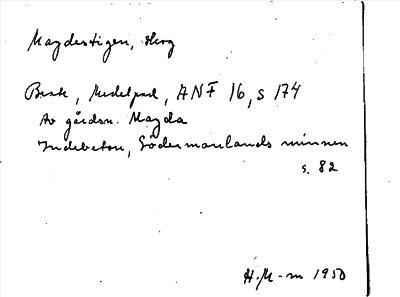 Magdestigen, Herg
Berk, Medelpad, ANF 16, s 174
Av gårdsn. Magda
Indebetou, Södermanlands minnen
s. 82
H.M-m 1950